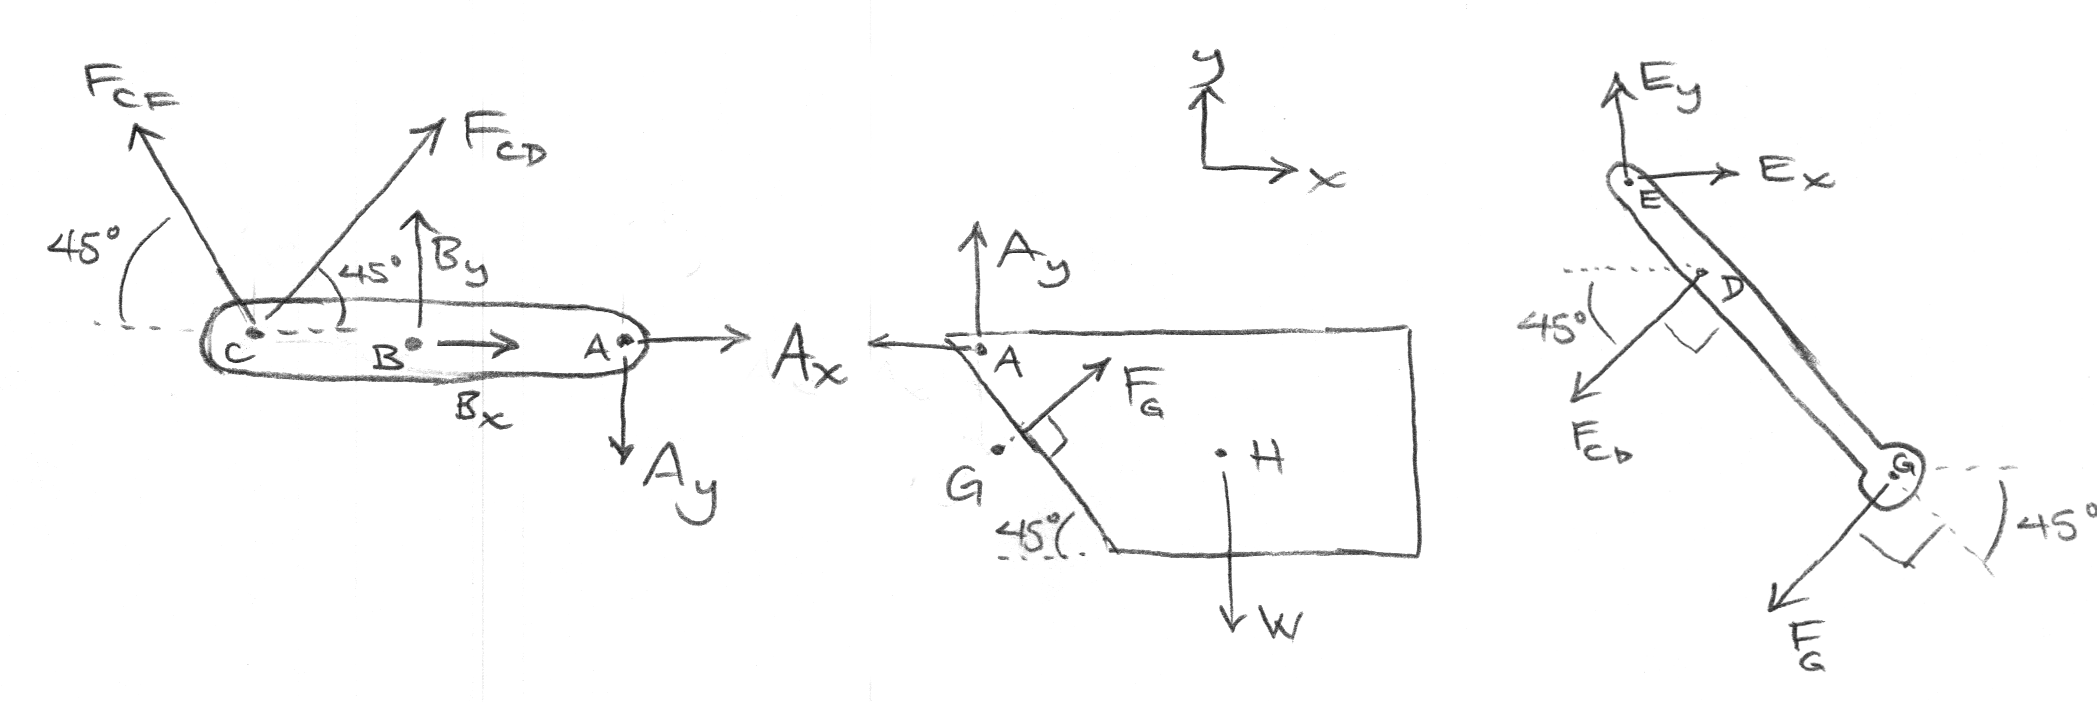 F_CF
F_CD
45°
45°
B_y
C
B
A
A_x
B_x
A_y
y
x
A_y
A
F_G
G
H
45°
W
E_y
E_x
E
D
45°
F_CD
G
45°
F_G